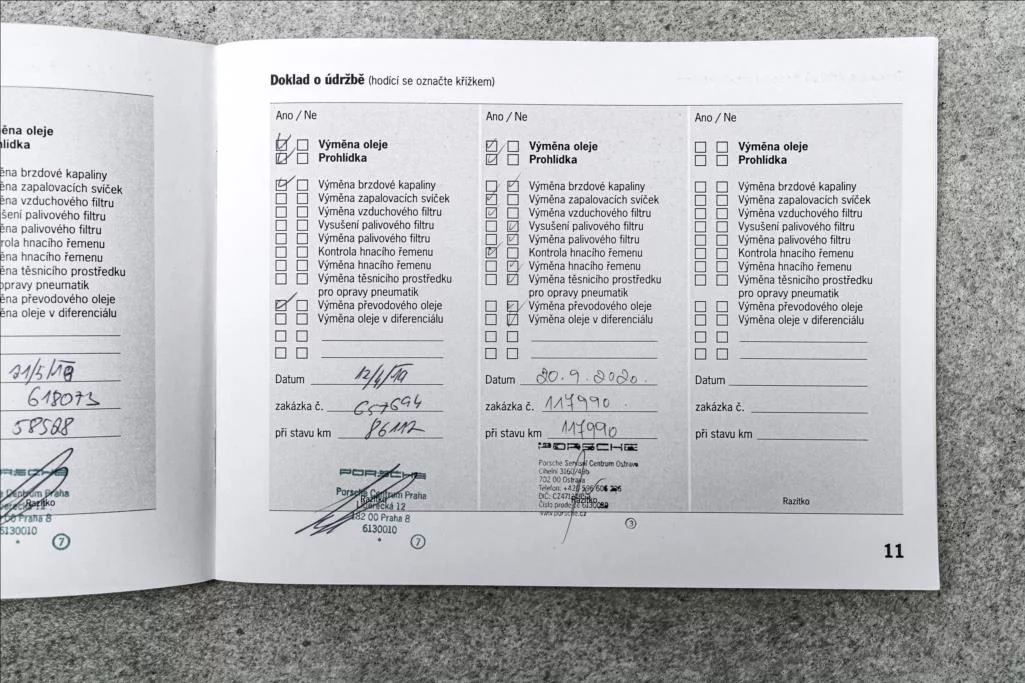 ěna oleje
lídka
ěna brzdové kapaliny
ěna zapalovacích svíček
ěna vzduchového filtru
šení palivového filtru
ěna palivového filtru
rola hnacího řemenu
ěna hnacího řemenu
ěna těsnicího prostředku
opravy pneumatik
ěna převodového oleje
ěna oleje v diferenciálu
618073
58528
Centrum Praha
Razítko
00 Praha 8
6130010
7
Doklad o údržbě (hodící se označte křížkem)
Ano / Ne
Výměna oleje
Prohlídka
Výměna brzdové kapaliny
Výměna zapalovacích svíček
Výměna vzduchového filtru
Vysušení palivového filtru
Výměna palivového filtru
Kontrola hnacího řemenu
Výměna hnacího řemenu
Výměna těsnicího prostředku
pro opravy pneumatik
Výměna převodového oleje
Výměna oleje v diferenciálu
Datum
zakázka č. 657694
při stavu km 86112
PORSCHE
Porsche Centrum Praha
Razítko
Liberecká 12
182 00 Praha 8
6130010
7
Ano / Ne
Výměna oleje
Prohlídka
Výměna brzdové kapaliny
Výměna zapalovacích svíček
Výměna vzduchového filtru
Vysušení palivového filtru
Výměna palivového filtru
Kontrola hnacího řemenu
Výměna hnacího řemenu
Výměna těsnicího prostředku
pro opravy pneumatik
Výměna převodového oleje
Výměna oleje v diferenciálu
Datum 20.9.2020.
zakázka č. 117990.
při stavu km 117990
PORSCHE
Porsche Servisní Centrum Ostrava
Cihelní 3160/49b
702 00 Ostrava
Telefon:
DIČ:
Razítko
Číslo prodejce
www.porsche.cz
3
Ano / Ne
Výměna oleje
Prohlídka
Výměna brzdové kapaliny
Výměna zapalovacích svíček
Výměna vzduchového filtru
Vysušení palivového filtru
Výměna palivového filtru
Kontrola hnacího řemenu
Výměna hnacího řemenu
Výměna těsnicího prostředku
pro opravy pneumatik
Výměna převodového oleje
Výměna oleje v diferenciálu
Datum
zakázka č.
při stavu km
Razítko
11